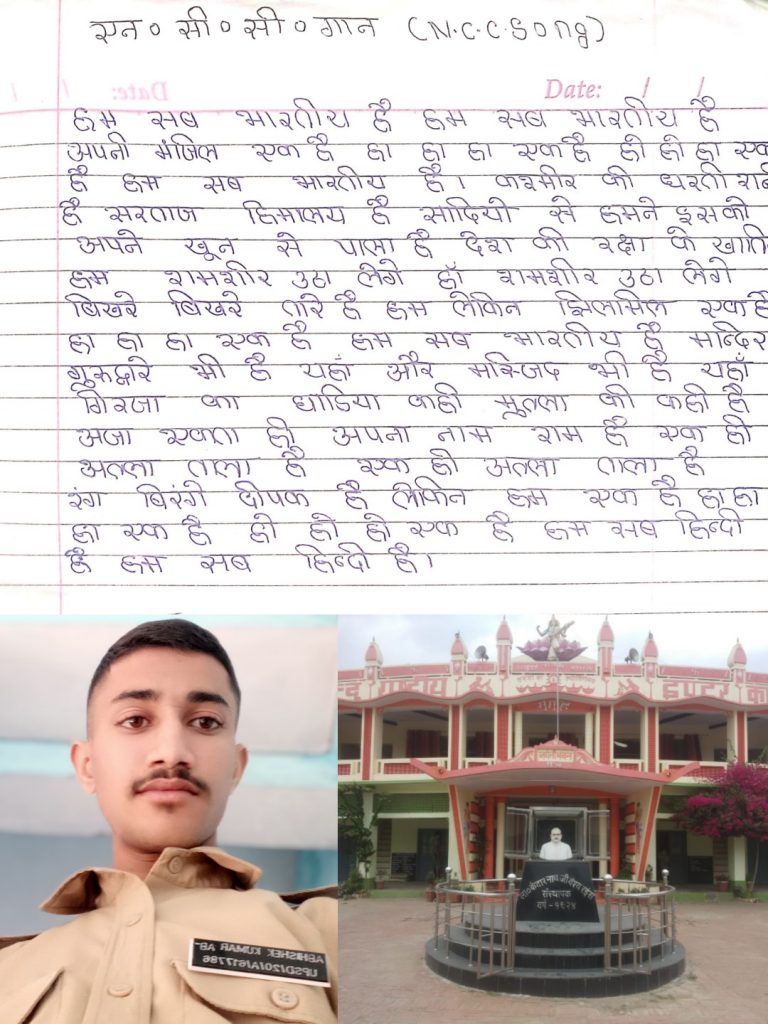 एन० सी० सी० गान (N.C.C. Song)
Date: / /
हम सब भारतीय है हम सब भारतीय है
अपनी मंजिल एक है हा हा हा एक है हो हो हा एक
है हम सब भारतीय है। कश्मीर की धरती रानी
है सरताज हिमालय है सादियो से हमने इसको
अपने खून से पाला है देश की रक्षा के खाति
हम शमशीर उठा लेगे हाँ शमशीर उठा लेगे
बिखरे बिखरे तारे है हम लेकिन झिलमिल एक है
हा हा हा एक है हम सब भारतीय है मन्दिर
गुरुद्वारे भी है यहाँ और मस्जिद भी है यहाँ
गिरजा का घाडिया कही मूतला की कही है
अजा एकता ही अपना नाम राम है एक ही
अतला ताला है एक हो अतला ताला है
रंग बिरंगे दीपक है लेकिन हम एक है हा हा
हा एक है हो हो हो एक है हम सब हिन्दी
है हम सब हिन्दी है।
ABHISHEK KUMAR
UPSD/20/A/617786
राष्ट्रीय
इण्टर का
संस्थापक
वर्ष - १९२४